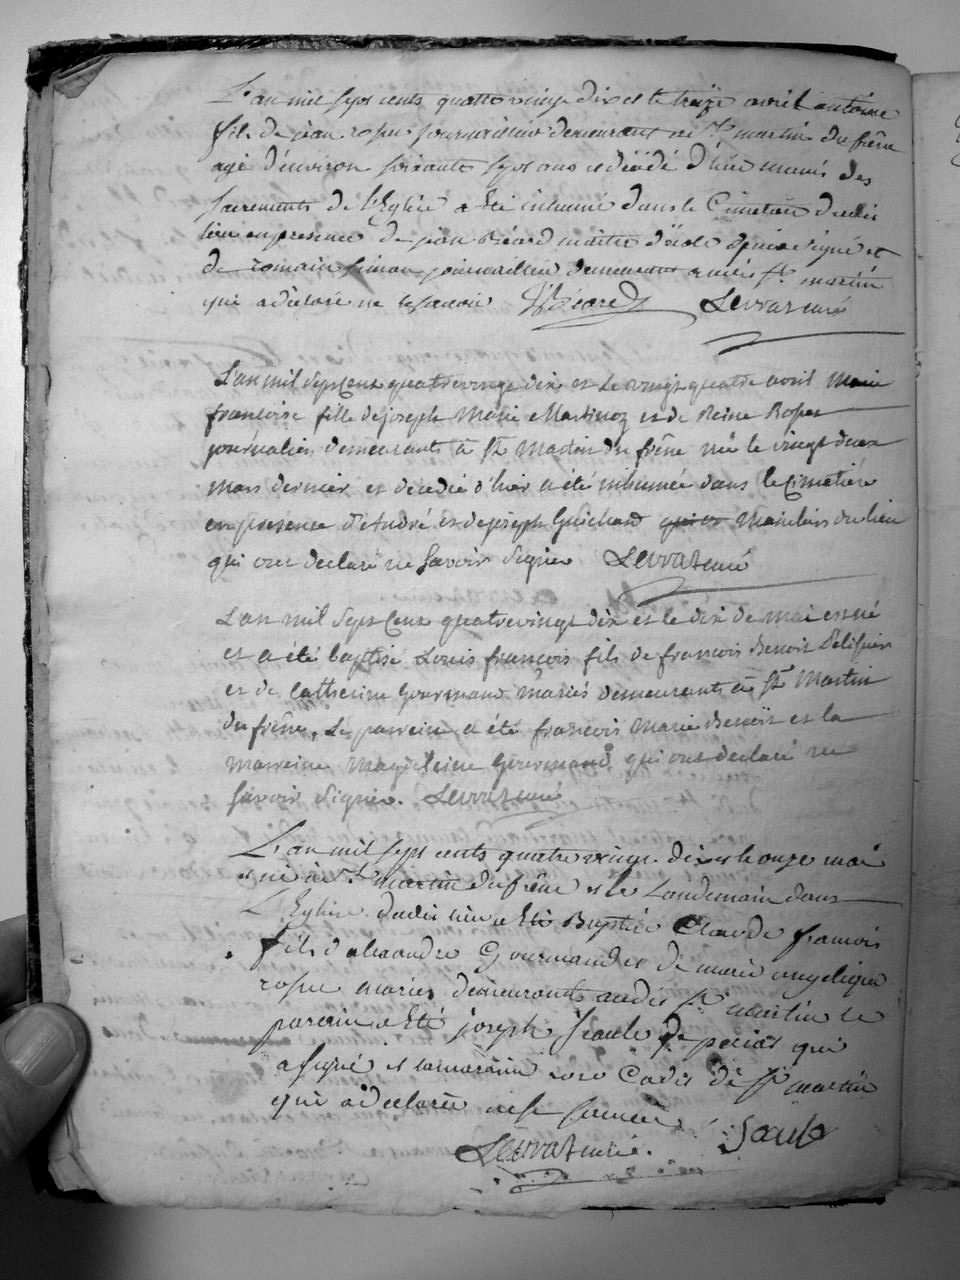 L'an mil sept cents quattre vingt dix et le treize avril antoine
fils de jean rosset journaillier demeurant à St martin du frêne
agé d'environ soixante sept ans et décédé d'hier munis des
sacrements de l'Eglise a Eté inhumé dans le Cimetiere dudit
lieu en presence de jean Béard maitre d'école qui a signé et
de romain simon journaillier demeurant audit St martin
qui a déclaré ne le savoir Béard Levrat curé
L'an mil Sept Cent quatrevingt dix et Le vingt quatre avril Marie
francoise fille de joseph Marie Martinoz et de Reine Rosset
journaliers demeurants à St Martin du frêne née le vingt deux
Mars dernier et décédée d'hier a été inhumée dans le Cimetière
en presence d'André et de joseph Guichard Manuliers du lieu
qui ont declaré ne Savoir Signer Levrat curé
L'an mil Sept Cent quatrevingt dix et le dix de mai est né
et a été baptisé Louis françois fils de francois Benoit Pélissier
et de Catherine Gourmand mariés demeurants à St Martin
du frêne, Le parrein a été françois Marie Benoit et la
marreine Magdeleine Gourmand qui ont declaré ne
Savoir Signer. Levrat curé
L'an mil sept cents quatre vingt dix et le onze mai
est né à St martin du frêne et le Landemain dans
L'Eglise dudit lieu a Eté Baptisé Claude francois
fils d'alexandre Gourmand et de marie angelique
rosset mariés demeurants audit St martin le
parrain a Eté joseph Saule qui
a signé et la marraine de St martin
qui a declaré ne le savoir.
Levrat curé. Saule